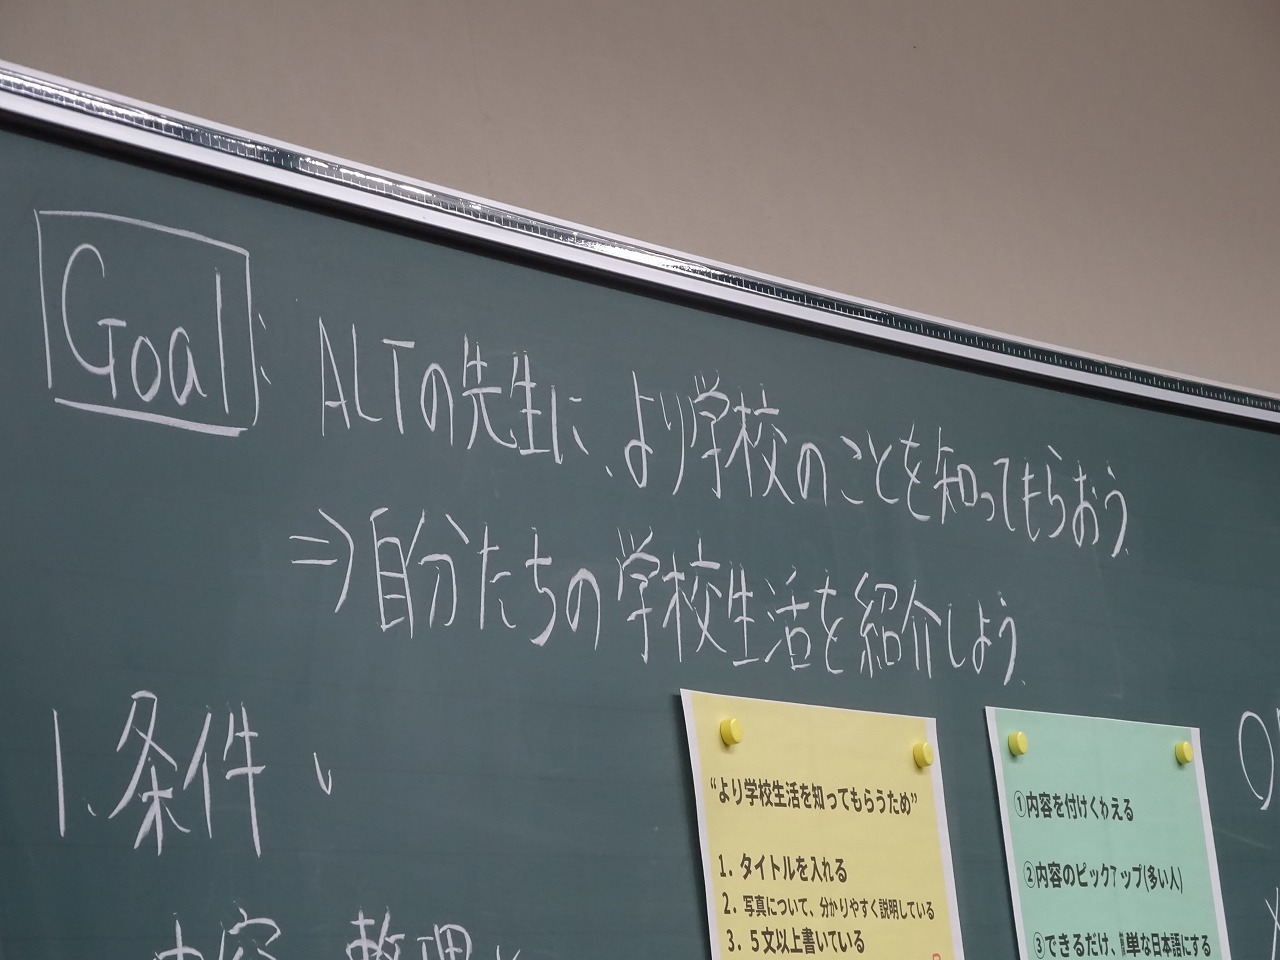 Goal: ALTの先生に、より学校のことを知ってもらおう。
⇒自分たちの学校生活を紹介しよう。
1.条件
内容 整理
“より学校生活を知ってもらうため”
1. タイトルを入れる
2. 写真について、分かりやすく説明している
3. ５文以上書いている
①内容を付けくわえる
②内容のピックアップ(多い人)
③できるだけ、簡単な日本語にする